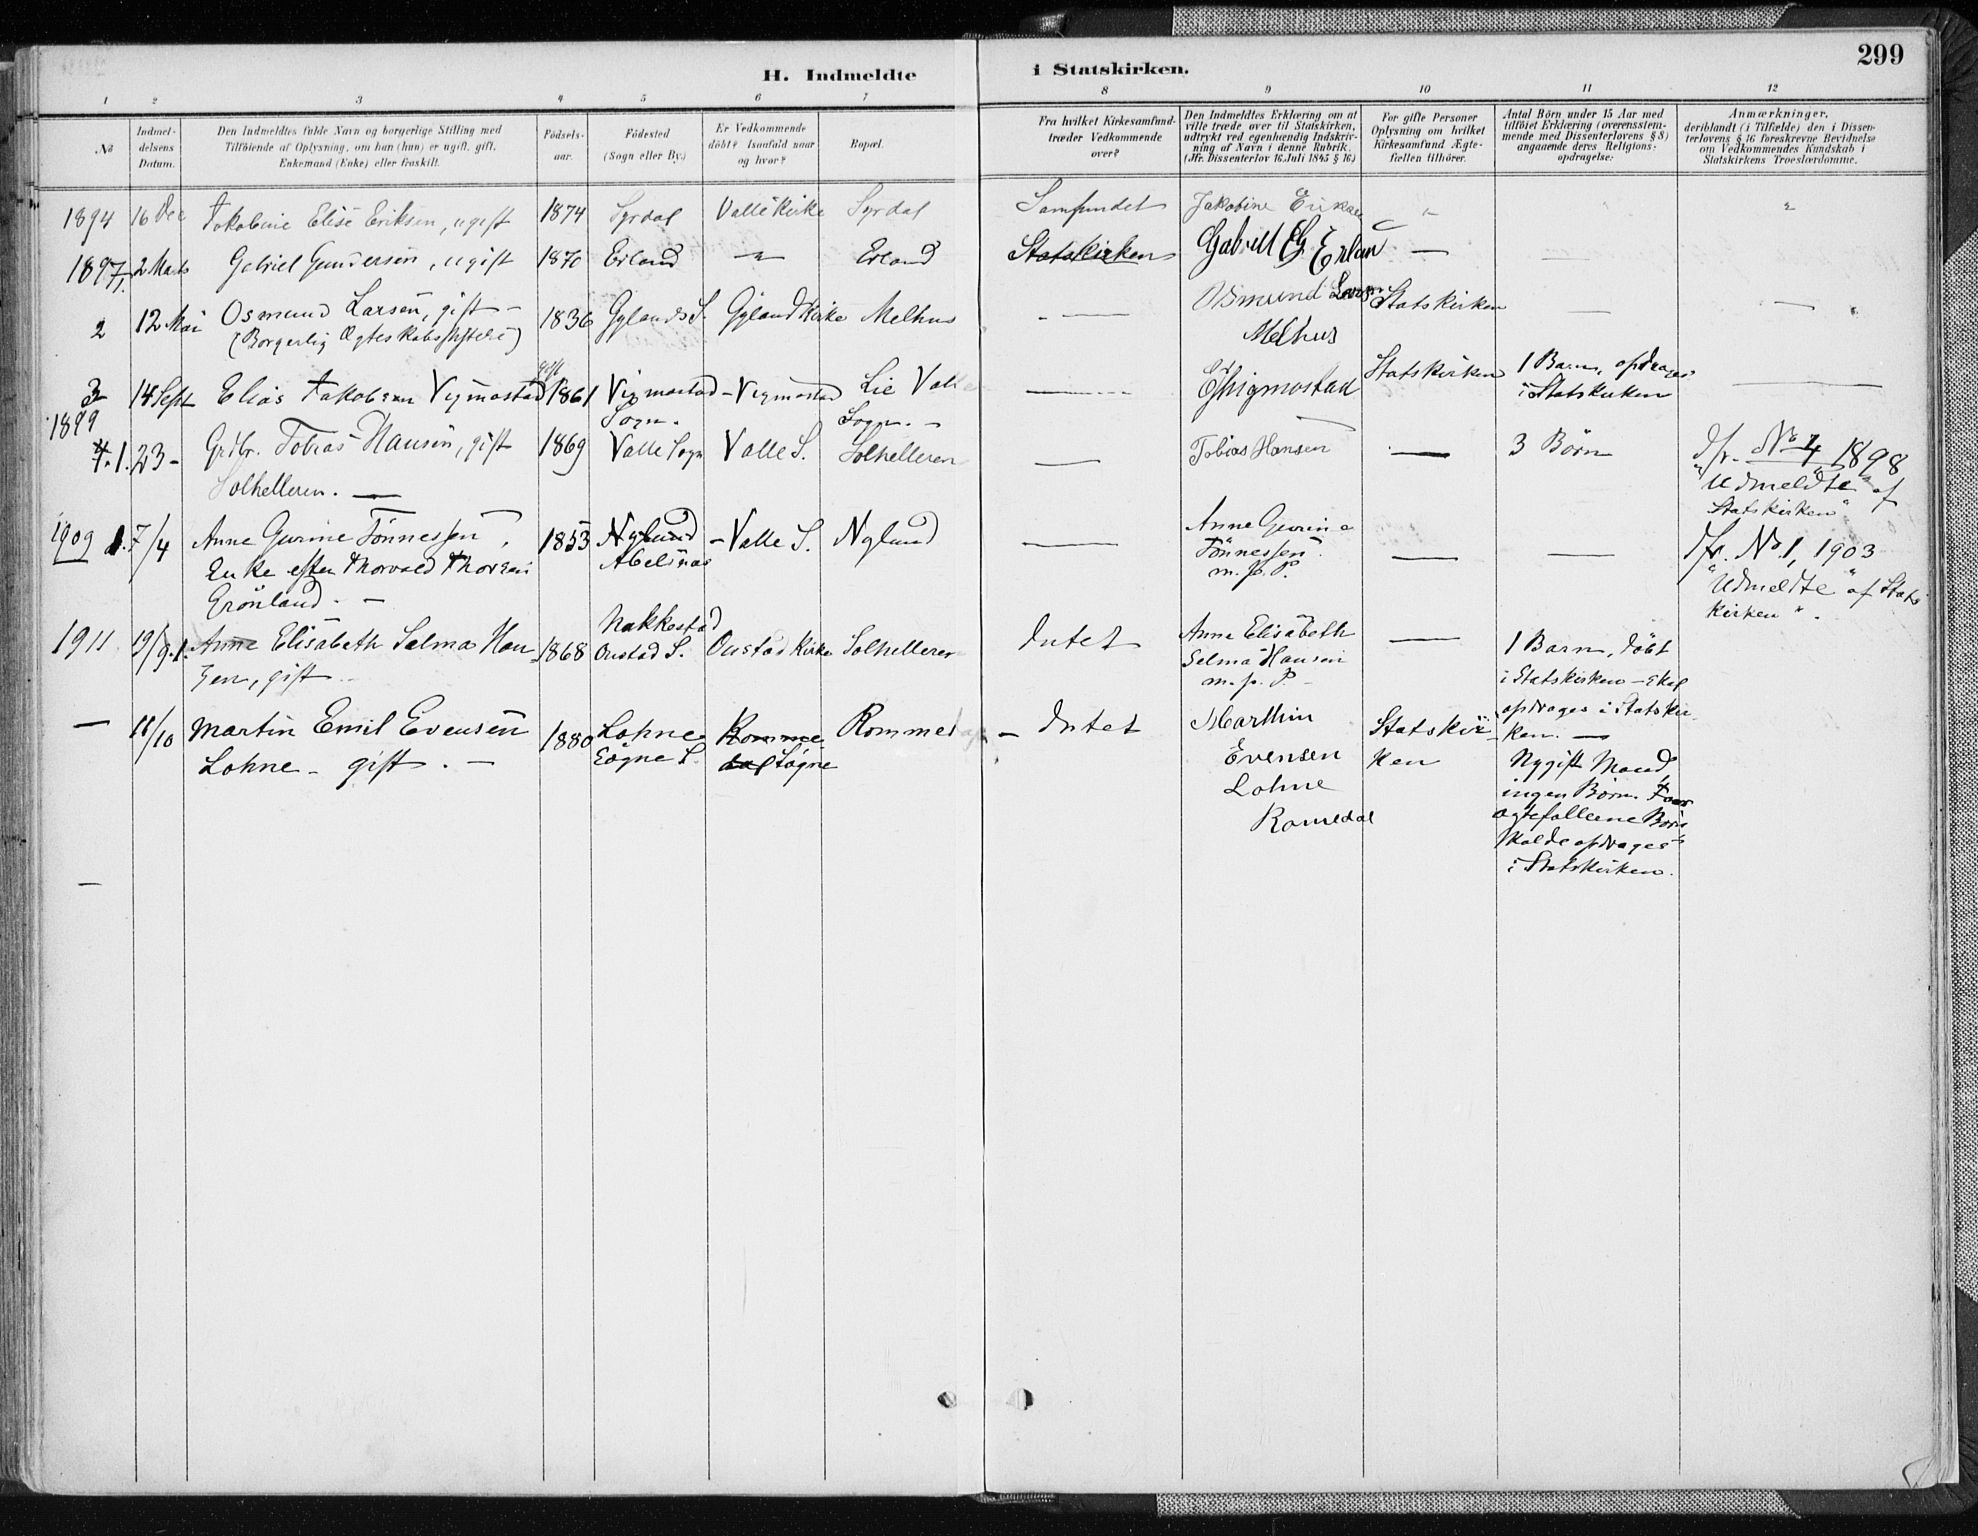 299
H. Indmeldte i Statskirken.
1 2 3 4 5 6 7 8 9 10 11 12
No
Indmel-
delsens
Datum.
Den Indmeldtes fulde Navn og borgerlige Stilling med
Tilföiende af Oplysning, om han (hun) er ugift, gift,
Enkemand (Enke) eller fraskilt.
Födsels-
aar.
Födested
(Sogn eller By.)
Er Vedkommende
döbt? Isaafald naar
og hvor?
Bopæl.
Fra hvilket Kirkesamfund
træder Vedkommende
over?
Den Indmeldtes Erklæring om at
ville træde over til Statskirken,
udtrykt ved egenhændig Indskriv-
ning af Navn i denne Rubrik.
(Jfr. Dissenterlov 16 Juli 1845 § 16.)
For gifte Personer
Oplysning om hvilket
Kirkesamfund Ægte-
fællen tilhörer.
Antal Börn under 15 Aar med
tilföiet Erklæring (overensstem-
mende med Dissenterlovens § 8)
angaaende deres Religions-
opdragelse:
Anmærkninger,
deriblandt (i Tilfælde) den i Dissen-
terlovens § 16 foreskrevne Bevidnelse
om Vedkommendes Kundskab i
Statskirkens Troeslærdomme.
1894 16 Dec Jakobine Elise Eriksen, ugift 1874 Syrdal Valle Kirke Syrdal Samfundet Jakobine Eriksen " " "
1897 1. 2 Mats Gabriel Gundersen, ugift 1870 Erland " Erland Statskirken Gabriel G Erlan — —
2 12 Mai Osmund Larsen, gift – 1836 Gylands S. Gyland Kirke Melhus - — Osmund Larsen Statskirken — —
(Borgerlig Ægteskabsstiftelse) Melhus
3 14 Sept Elias Jakobsen Vigmostad gift 1861 Vigmostad – Vigmostad Lie Valle — Statskirken 1 Barn, opdrages —
Sogn. Sogn. – i Statskirken
1899
1. 23 – Grdbr. Tobias Hansen, gift 1869 Valle Sogn Valle S. Solhelleren — Tobias Hansen — 3 Börn Jfr. No 4 1898
Solhelleren. — "Udmeldte af
Statskirken"
1909 1. 7/4 Anne Gurine Tönnessen, 1853 Nylund – Valle S. Nylund — Anne Gurine — — Jfr. No 1, 1903
Enke efter Thorvald Thorsen Abelsnæs Tönnessen. "Udmeldte" af Stats
Grönland. – m. p. P. Kirken".
1911 19/9. 1. Anne Elisabeth Selma Han- 1868 Nakkestad
Oustad S. Oustad Kirke Solhelleren Intet Anne Elisabeth — 1 Barn, döbt
sen, gift – Selma Hansen i Statskirken – skal
m. p. P. – opdrages i Statskir-
ken. —
— 11/10 Martin Emil Evensen 1880 Lohne Romme- Rommedal – Intet Marthin Statskir-
Lohne – gift. – Sögne S. dal Sögne Evensen ken Nygift Mand
Lohne ingen Börn.
Romedal ægtefællerne Börn
skulde opdrages
i Statskirken.
—